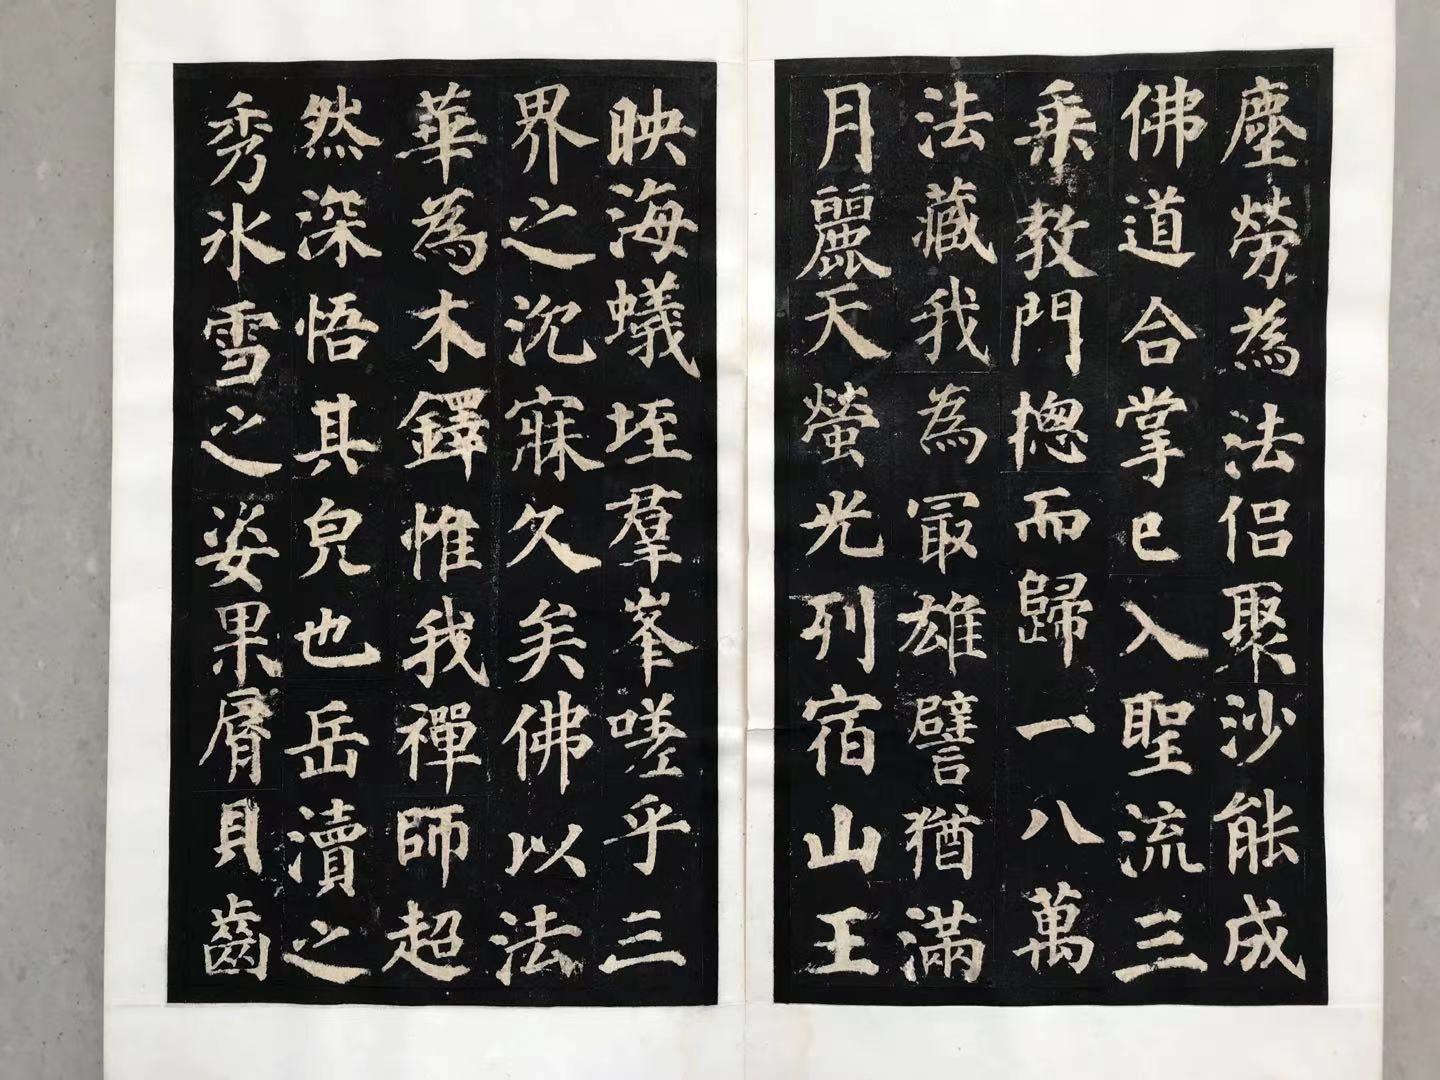 塵勞為法侶聚沙能成
佛道合掌已入聖流三
乘教門揔而歸一八萬
法藏我為冣雄譬猶滿
月麗天螢光列宿山王
映海蟻垤羣峯嗟乎三
界之沉寐久矣佛以法
華為木鐸惟我禪師超
然深悟其皃也岳瀆之
秀氷雪之姿果脣貝齒